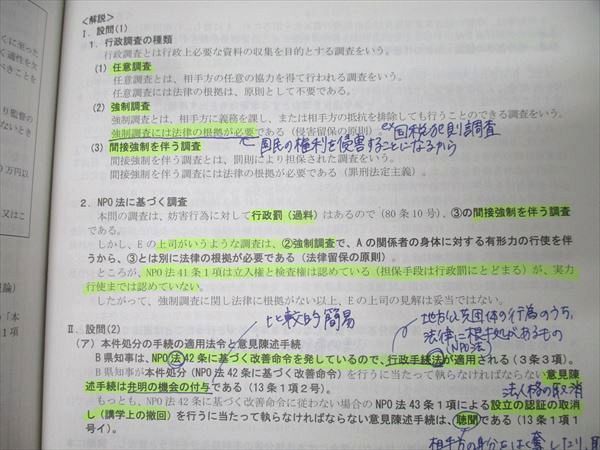 くに至った
く適性を欠
べきことを
り監督の
ないとき
0万円以
又はこ
論)
の「本
1項
<解説>
Ⅰ.設問(1)
1.行政調査の種類
行政調査とは行政上必要な資料の収集を目的とする調査をいう。
(1) 任意調査
任意調査とは、相手方の任意の協力を得て行われる調査をいう。
任意調査には法律の根拠は、原則として不要である。
(2) 強制調査
強制調査とは、相手方に義務を課し、または相手方の抵抗を排除しても行うことのできる調査をいう。
強制調査には法律の根拠が必要である(侵害留保の原則) ex 国税犯則調査
国民の権利を侵害することになるから
(3) 間接強制を伴う調査
間接強制を伴う調査とは、罰則により担保された調査をいう。
間接強制を伴う調査には法律の根拠が必要である(罪刑法定主義)。
2.NPO法に基づく調査
本問の調査は、妨害行為に対して行政罰(過料)はあるので(80条10号)、③の間接強制を伴う調査
である。
しかし、Eの上司がいうような調査は、②強制調査で、Aの関係者の身体に対する有形力の行使を伴
うから、③とは別に法律の根拠が必要である(法律留保の原則)。
ところが、NPO法41条1項は立入権と検査権は認めている(担保手段は行政罰にとどまる)が、実力
行使までは認めていない。
したがって、強制調査に関し法律に根拠がない以上、Eの上司の見解は妥当ではない。
比較的簡易
地方公共団体の行為のうち、
法律に根拠があるもの
(NPO法)
Ⅱ.設問(2)
(ア)本件処分の手続の適用法令と意見陳述手続
B県知事は、NPO法42条に基づく改善命令を発しているので、行政手続法が適用される(3条3項)。
B県知事が本件処分(NPO法42条に基づく改善命令)を行うに当たって執らなければならない意見陳
述手続は弁明の機会の付与である(13条1項2号)。
法人格の取消
もっとも、NPO法42条に基づく改善命令に従わない場合のNPO法43条1項による設立の認証の取消
し(講学上の撤回)を行うに当たって執らなければならない意見陳述手続は、聴聞である(13条1項1
号イ)。
相手方の身分をはく奪したり、